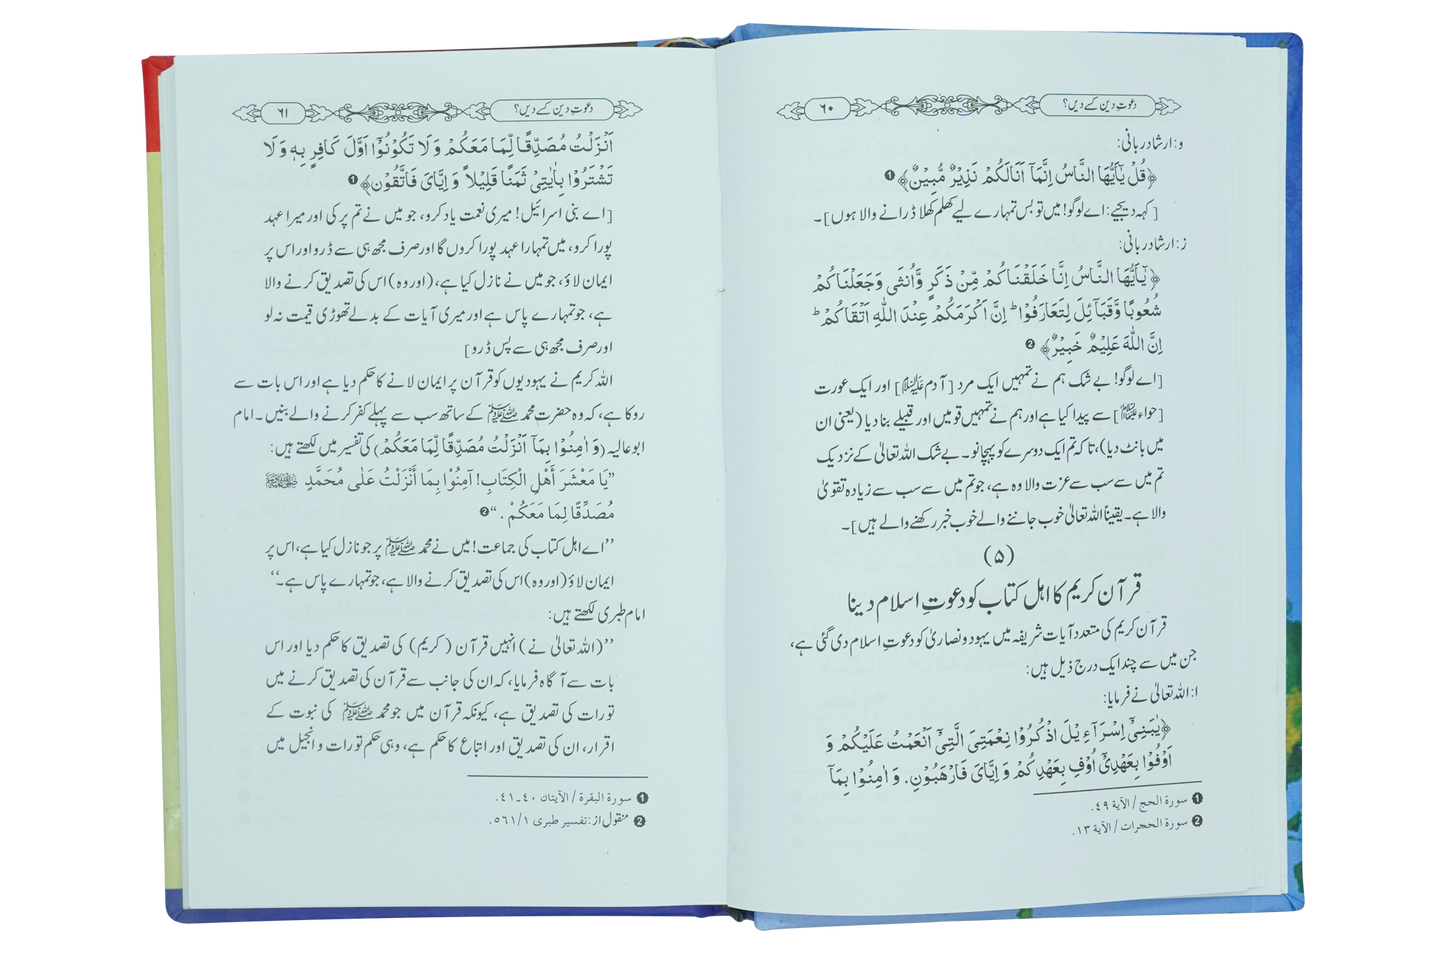 دعوتِ دین کسے دیں؟
۶۰
و: ارشادِ ربانی:
﴿قُلْ يٰٓاَيُّهَا النَّاسُ اِنَّمَآ اَنَا لَكُمْ نَذِيْرٌ مُّبِيْنٌ﴾ ❶
[کہہ دیجیے: اے لوگو! میں تو بس تمہارے لیے کھلم کھلا ڈرانے والا ہوں]۔
ز: ارشادِ ربانی:
﴿يٰٓاَيُّهَا النَّاسُ اِنَّا خَلَقْنَاكُمْ مِّنْ ذَكَرٍ وَّاُنْثٰى وَجَعَلْنَاكُمْ
شُعُوبًا وَّقَبَآئِلَ لِتَعَارَفُوْا ؕ اِنَّ اَكْرَمَكُمْ عِنْدَ اللّٰهِ اَتْقَاكُمْ ؕ
اِنَّ اللّٰهَ عَلِيْمٌ خَبِيْرٌ﴾ ❷
[اے لوگو! بے شک ہم نے تمہیں ایک مرد [آدم علیہ السلام] اور ایک عورت
[حواء علیہا السلام] سے پیدا کیا ہے اور ہم نے تمہیں قومیں اور قبیلے بنا دیا (یعنی ان
میں بانٹ دیا)، تاکہ تم ایک دوسرے کو پہچانو۔ بے شک اللہ تعالیٰ کے نزدیک
تم میں سے سب سے عزت والا وہ ہے، جو تم میں سے سب سے زیادہ تقویٰ
والا ہے۔ یقیناً اللہ تعالیٰ خوب جاننے والے خوب خبر رکھنے والے ہیں]۔
(۵)
قرآن کریم کا اہل کتاب کو دعوتِ اسلام دینا
قرآن کریم کی متعدد آیات شریفہ میں یہود و نصاریٰ کو دعوتِ اسلام دی گئی ہے،
جن میں سے چند ایک درج ذیل ہیں:
ا: اللہ تعالیٰ نے فرمایا:
﴿يٰبَنِىْٓ اِسْرَآءِيْلَ اذْكُرُوْا نِعْمَتِىَ الَّتِىْٓ اَنْعَمْتُ عَلَيْكُمْ وَ
اَوْفُوْا بِعَهْدِىْٓ اُوْفِ بِعَهْدِكُمْ وَ اِيَّاىَ فَارْهَبُوْنِ. وَ اٰمِنُوْا بِمَآ
❶ سورة الحج / الآية ٤٩.
❷ سورة الحجرات / الآية ١٣.
دعوتِ دین کسے دیں؟
۶۱
اَنْزَلْتُ مُصَدِّقًا لِّمَا مَعَكُمْ وَ لَا تَكُوْنُوْٓا اَوَّلَ كَافِرٍ بِهٖ وَ لَا
تَشْتَرُوْا بِاٰيٰتِىْ ثَمَنًا قَلِيْلاً وَ اِيَّاىَ فَاتَّقُوْنِ﴾ ❶
[اے بنی اسرائیل! میری نعمت یاد کرو، جو میں نے تم پر کی اور میرا عہد
پورا کرو، میں تمہارا عہد پورا کروں گا اور صرف مجھ ہی سے ڈرو اور اس پر
ایمان لاؤ، جو میں نے نازل کیا ہے، (اور وہ) اس کی تصدیق کرنے والا
ہے، جو تمہارے پاس ہے اور میری آیات کے بدلے تھوڑی قیمت نہ لو
اور صرف مجھ ہی سے پس ڈرو]
اللہ کریم نے یہودیوں کو قرآن پر ایمان لانے کا حکم دیا ہے اور اس بات سے
روکا ہے، کہ وہ حضرت محمد ﷺ کے ساتھ سب سے پہلے کفر کرنے والے بنیں۔ امام
ابو عالیہ ﴿وَ اٰمِنُوْا بِمَآ اَنْزَلْتُ مُصَدِّقًا لِّمَا مَعَكُمْ﴾ کی تفسیر میں لکھتے ہیں:
”يَا مَعْشَرَ أَهْلِ الْكِتَابِ! آمِنُوْا بِمَا أَنْزَلْتُ عَلٰى مُحَمَّدٍ ﷺ
مُصَدِّقًا لِمَا مَعَكُمْ.“ ❷
’’اے اہل کتاب کی جماعت! میں نے محمد ﷺ پر جو نازل کیا ہے، اس پر
ایمان لاؤ (اور وہ) اس کی تصدیق کرنے والا ہے، جو تمہارے پاس ہے۔‘‘
امام طبری لکھتے ہیں:
’’(اللہ تعالیٰ نے) انہیں قرآن (کریم) کی تصدیق کا حکم دیا اور اس
بات سے آگاہ فرمایا، کہ ان کی جانب سے قرآن کی تصدیق کرنے میں
تورات کی تصدیق ہے، کیونکہ قرآن میں جو محمد ﷺ کی نبوت کے
اقرار، ان کی تصدیق اور اتباع کا حکم ہے، وہی حکم تورات و انجیل میں
❶ سورة البقرة / الآيتان ٤٠-٤١.
❷ منقول از: تفسیر طبری ۵٦١/١.